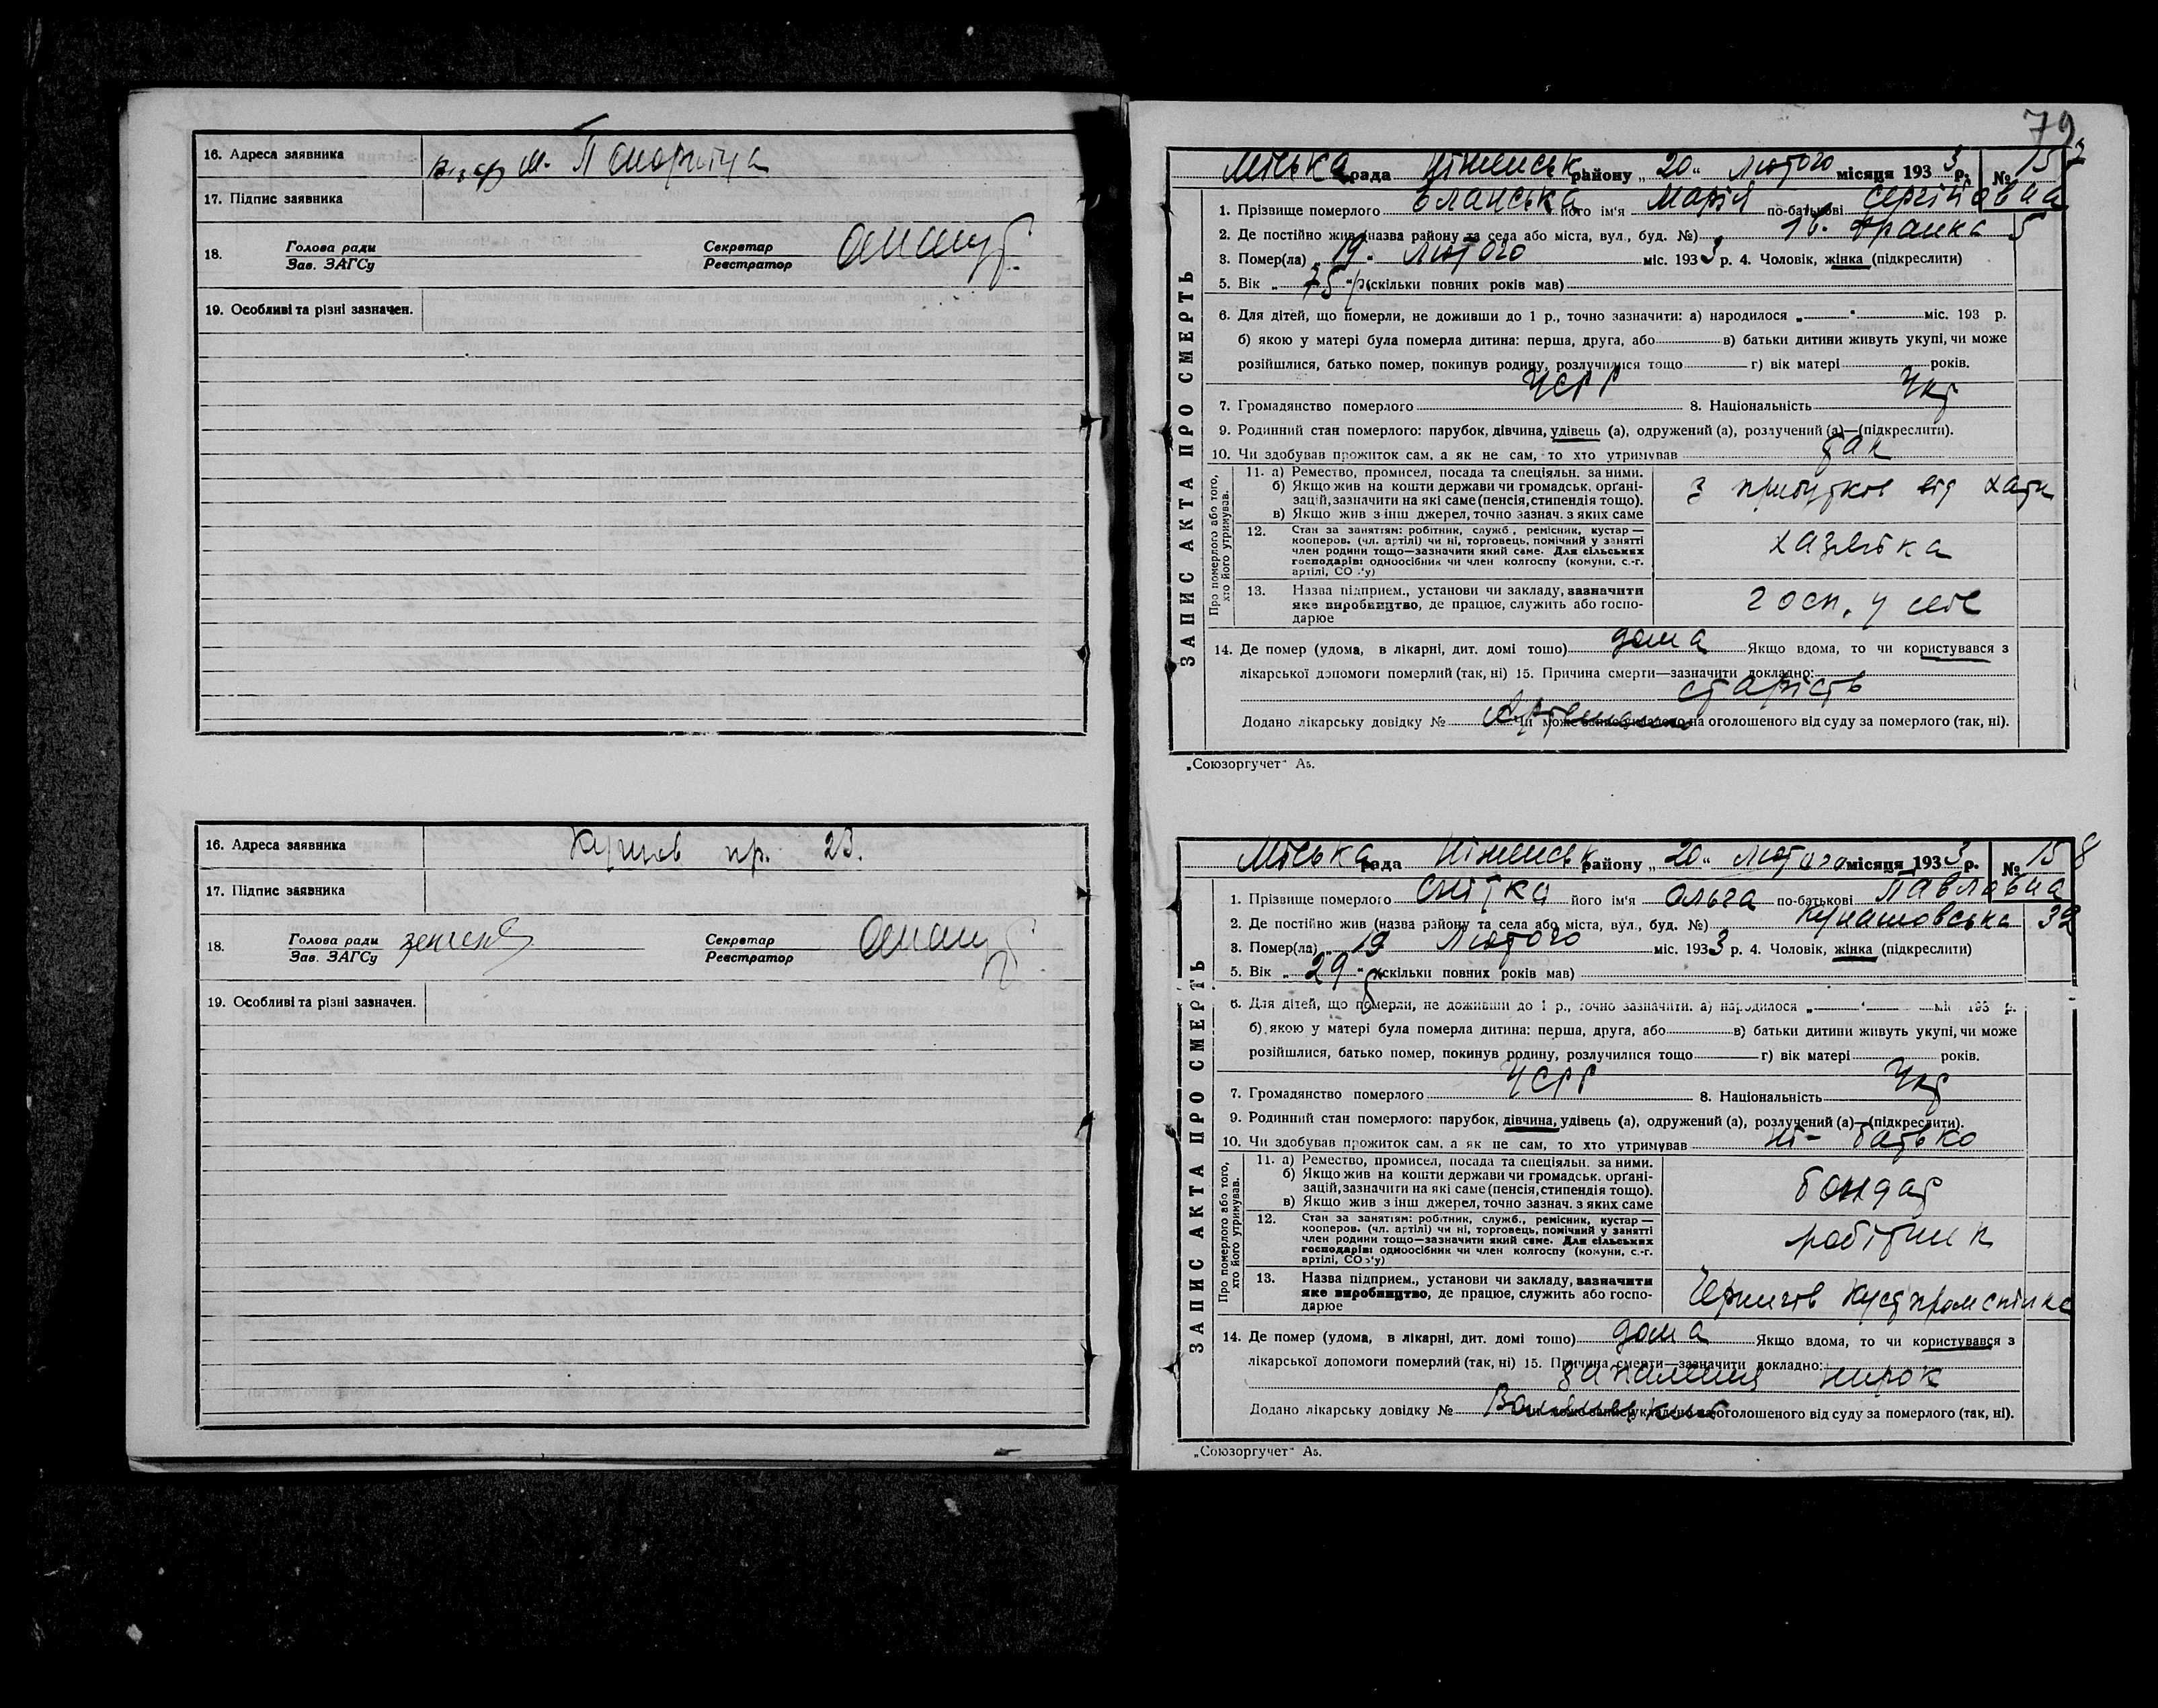 16. Адреса заявника
17. Підпис заявника
18. Голова ради Секретар
Зав. ЗАГСу Реєстратор
19. Особливі та різні зазначен.
16. Адреса заявника пр. 23.
17. Підпис заявника
18. Голова ради Секретар
Зав. ЗАГСу Реєстратор
19. Особливі та різні зазначен.
79
ЗАПИС АКТА ПРО СМЕРТЬ
Міська рада Ніженськ району „ 20 “ Лютого місяця 1933 р. № 157
1. Прізвище померлого Еланська його ім'я Марія по-батькові Сергіївна
2. Де постійно жив (назва району та села або міста, вул., буд. №) Ів. Франка 5
3. Помер(ла) „ 19 “ Лютого міс. 1933 р. 4. Чоловік, жінка (підкреслити)
5. Вік „ 75 “ р. (скільки повних років мав)
6. Для дітей, що померли, не доживши до 1 р., точно зазначити: а) народилося „ “ міс. 193 р.
б) якою у матері була померла дитина: перша, друга, або в) батьки дитини живуть укупі, чи може
розійшлися, батько помер, покинув родину, розлучилися тощо г) вік матері років.
7. Громадянство померлого УСРР 8. Національність Укр
9. Родинний стан померлого: парубок, дівчина, удівець (а), одружений (а), розлучений (а)—(підкреслити).
10. Чи здобував прожиток сам, а як не сам, то хто утримував так
Про померлого або того, хто його утримував.
11. а) Ремество, промисел, посада та спеціяльн. за ними.
б) Якщо жив на кошти держави чи громадськ. органі-
зацій, зазначити на які саме (пенсія, стипендія тощо).
в) Якщо жив з інш джерел, точно зазнач. з яких саме
з прибутков від хати
12. Стан за занятіям: робітник, служб., ремісник, кустар —
кооперов. (чл. артілі) чи ні, торговець, помічний у занятті
член родини тощо—зазначити який саме. Для сільських
господарів: одноосібник чи член колгоспу (комуни, с.-г.
артілі, СОЗ'у)
хазяйка
13. Назва підприєм., установи чи закладу, зазначити
яке виробництво, де працює, служить або госпо-
дарює
госп. у себе
14. Де помер (удома, в лікарні, дит. домі тощо) дома Якщо вдома, то чи користувався з
лікарської допомоги померлий (так, ні) 15. Причина смерти—зазначити докладно:
старість
Додано лікарську довідку № чи може запис укладено на оголошеного від суду за померлого (так, ні).
„Союзоргучет“ А5.
ЗАПИС АКТА ПРО СМЕРТЬ
Міська рада Ніженськ району „ 20 “ Лютого місяця 1933 р. № 158
1. Прізвище померлого Снітка його ім'я Ольга по-батькові Павловна
2. Де постійно жив (назва району та села або міста, вул., буд. №) Кунашовська 32
3. Помер(ла) „ 19 Лютого міс. 1933 р. 4. Чоловік, жінка (підкреслити)
5. Вік „ 29 “ р (скільки повних років мав)
6. Для дітей, що померли, не доживши до 1 р., точно зазначити. а) народилося „ “ міс 193 р.
б) якою у матері була померла дитина: перша, друга, або в) батьки дитини живуть укупі, чи може
розійшлися, батько помер, покинув родину, розлучилися тощо г) вік матері років.
7. Громадянство померлого УСРР 8. Національність Укр
9. Родинний стан померлого: парубок, дівчина, удівець (а), одружений (а), розлучений (а)—(підкреслити).
10. Чи здобував прожиток сам, а як не сам, то хто утримував ні - батько
Про померлого або того, хто його утримував.
11. а) Ремество, промисел, посада та спеціяльн. за ними.
б) Якщо жив на кошти держави чи громадськ. органі-
зацій, зазначити на які саме (пенсія, стипендія тощо).
в) Якщо жив з інш джерел, точно зазнач. з яких саме
бондар
12. Стан за занятіям: робітник, служб., ремісник, кустар —
кооперов. (чл. артілі) чи ні, торговець, помічний у занятті
член родини тощо—зазначити який саме. Для сільських
господарів: одноосібник чи член колгоспу (комуни, с.-г.
артілі, СОЗ'у)
робітник
13. Назва підприєм., установи чи закладу, зазначити
яке виробництво, де працює, служить або госпо-
дарює
Чернигів Кустпромспілка
14. Де помер (удома, в лікарні, дит. домі тощо) дома Якщо вдома, то чи користувався з
лікарської допомоги померлий (так, ні) 15. Причина смерти—зазначити докладно:
запалення нирок
Додано лікарську довідку № чи може запис укладено на оголошеного від суду за померлого (так, ні).
„Союзоргучет“ А5.